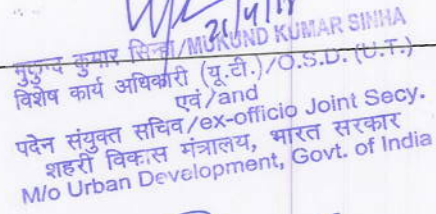 21/4/18
मुकुन्द कुमार सिन्हा/MUKUND KUMAR SINHA
विशेष कार्य अधिकारी (यू.टी.)/O.S.D. (U.T.)
एवं/and
पदेन संयुक्त सचिव/ex-officio Joint Secy.
शहरी विकास मंत्रालय, भारत सरकार
M/o Urban Development, Govt. of India